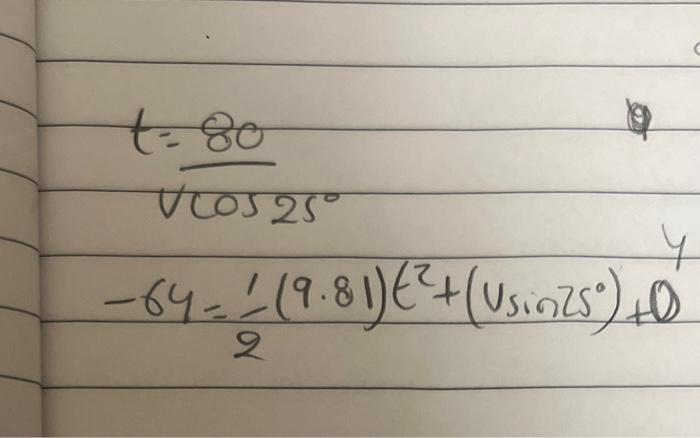 t = 80
Vcos 25°
y
-64 = 1/2 (9.81)t² + (Vsin25°) + 0